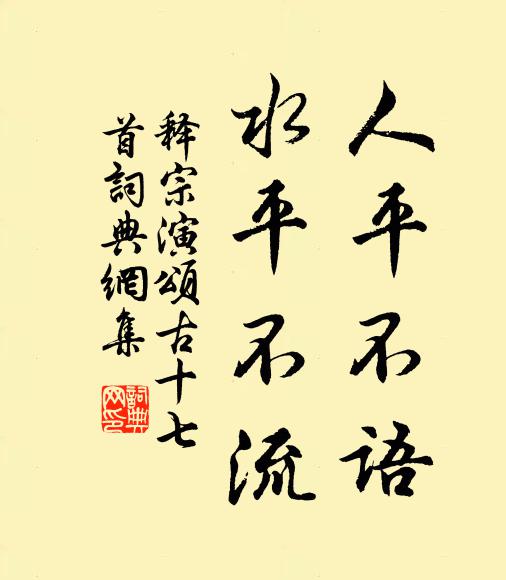 人平不语
水平不流
释宗演頌古十七
首詞典網集
詞典
网印